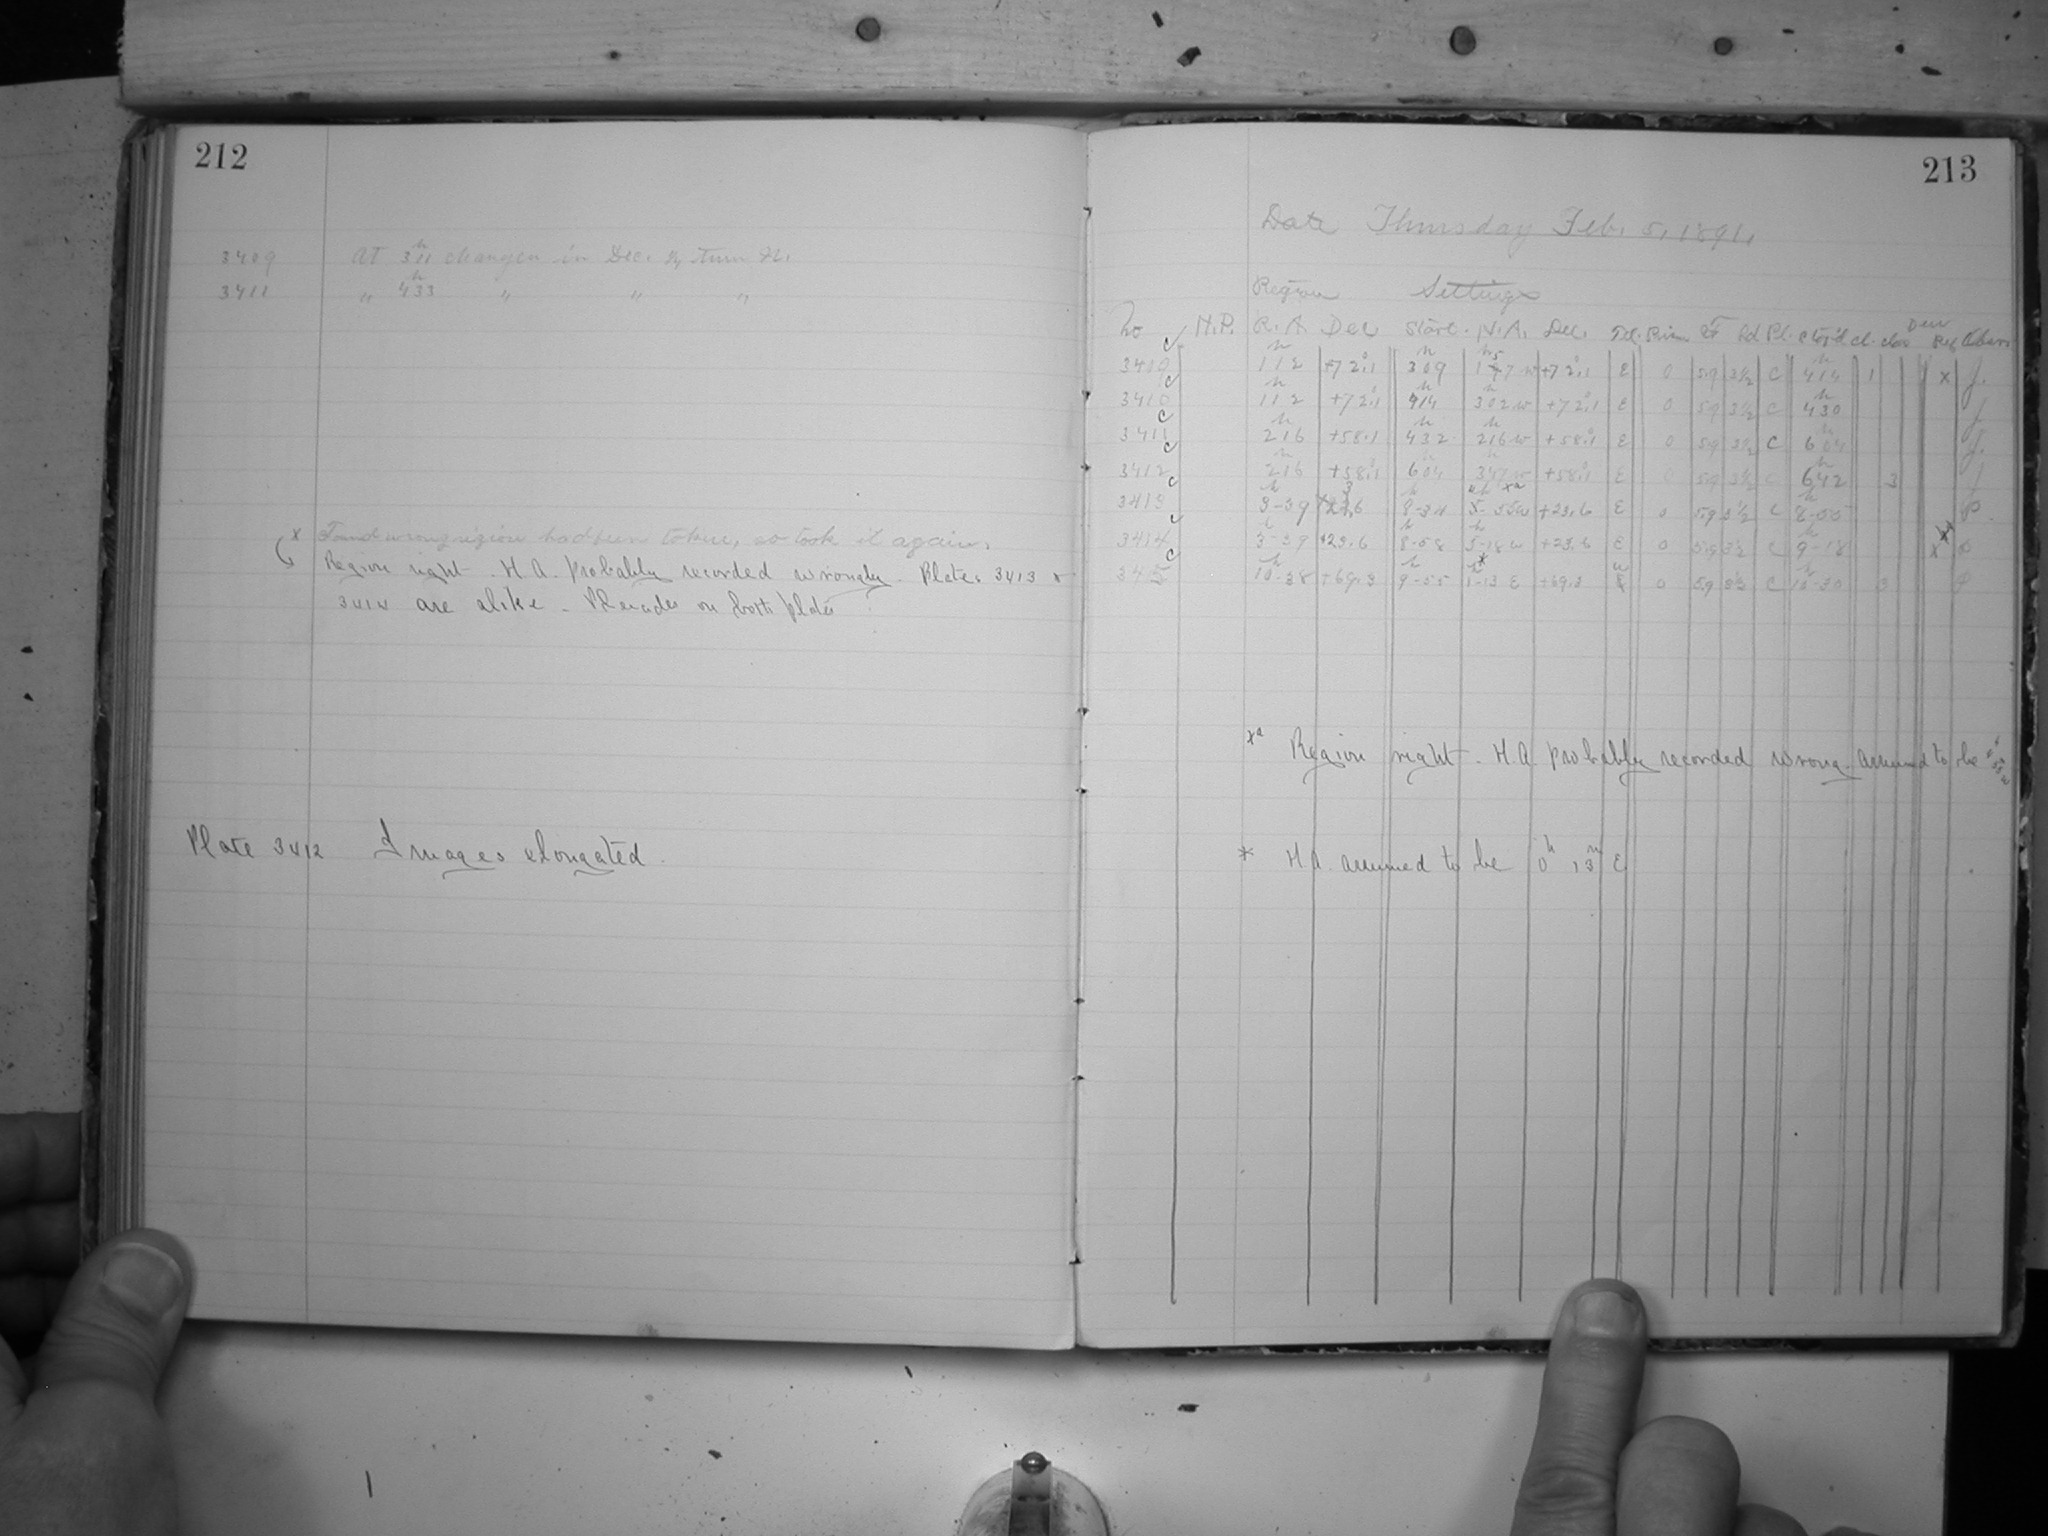 212
3409 At 3h11 changed in Dec. turn
3411 " 4h33 " " "
x Found wrong region had been taken, so took it again.
Region right. H.A. probably recorded wrongly. Plates 3413 &
3414 are alike. Pleiades on both plates
Plate 3412 Images elongated.
213
Date Thursday Feb. 5, 1891.
Region Settings
No H.P. R.A Dec Start. H.A. Dec. Tel. Prism Pl. Clos'd cl. clos Dew Ref Obsvr
3409 c 1h12 +72°.1 3h09 w +72°.1 E 0 59 3½ C 4h14 1 x J.
3410 c 1h12 +72°.1 4h14 3h02w +72°.1 E 0 59 3½ C 4h30 J
3411 c 2h16 +58.1 4h32 2h16w +58°.1 E 0 59 3½ C 6h04 J.
3412 c 2h16 +58°.1 6h04 w +58°.1 E 0 59 3½ C 6h42 3 J
3413 c 3h-39 +23.6 8h-34 xa +23.6 E 0 59 3½ C P.
3414 3h-39 +23.6 8h-58 5h-18w +23.6 E 0 59 3½ C 9h-18 x
3415 c 10h-38 +69.3 9h-55 1h-13 E * +69.3 w 0 59 3½ C 10h-30 3 P
xa Region right. H.A. probably recorded wrong. assumed to be
* H.A. assumed to be 0h 13m E